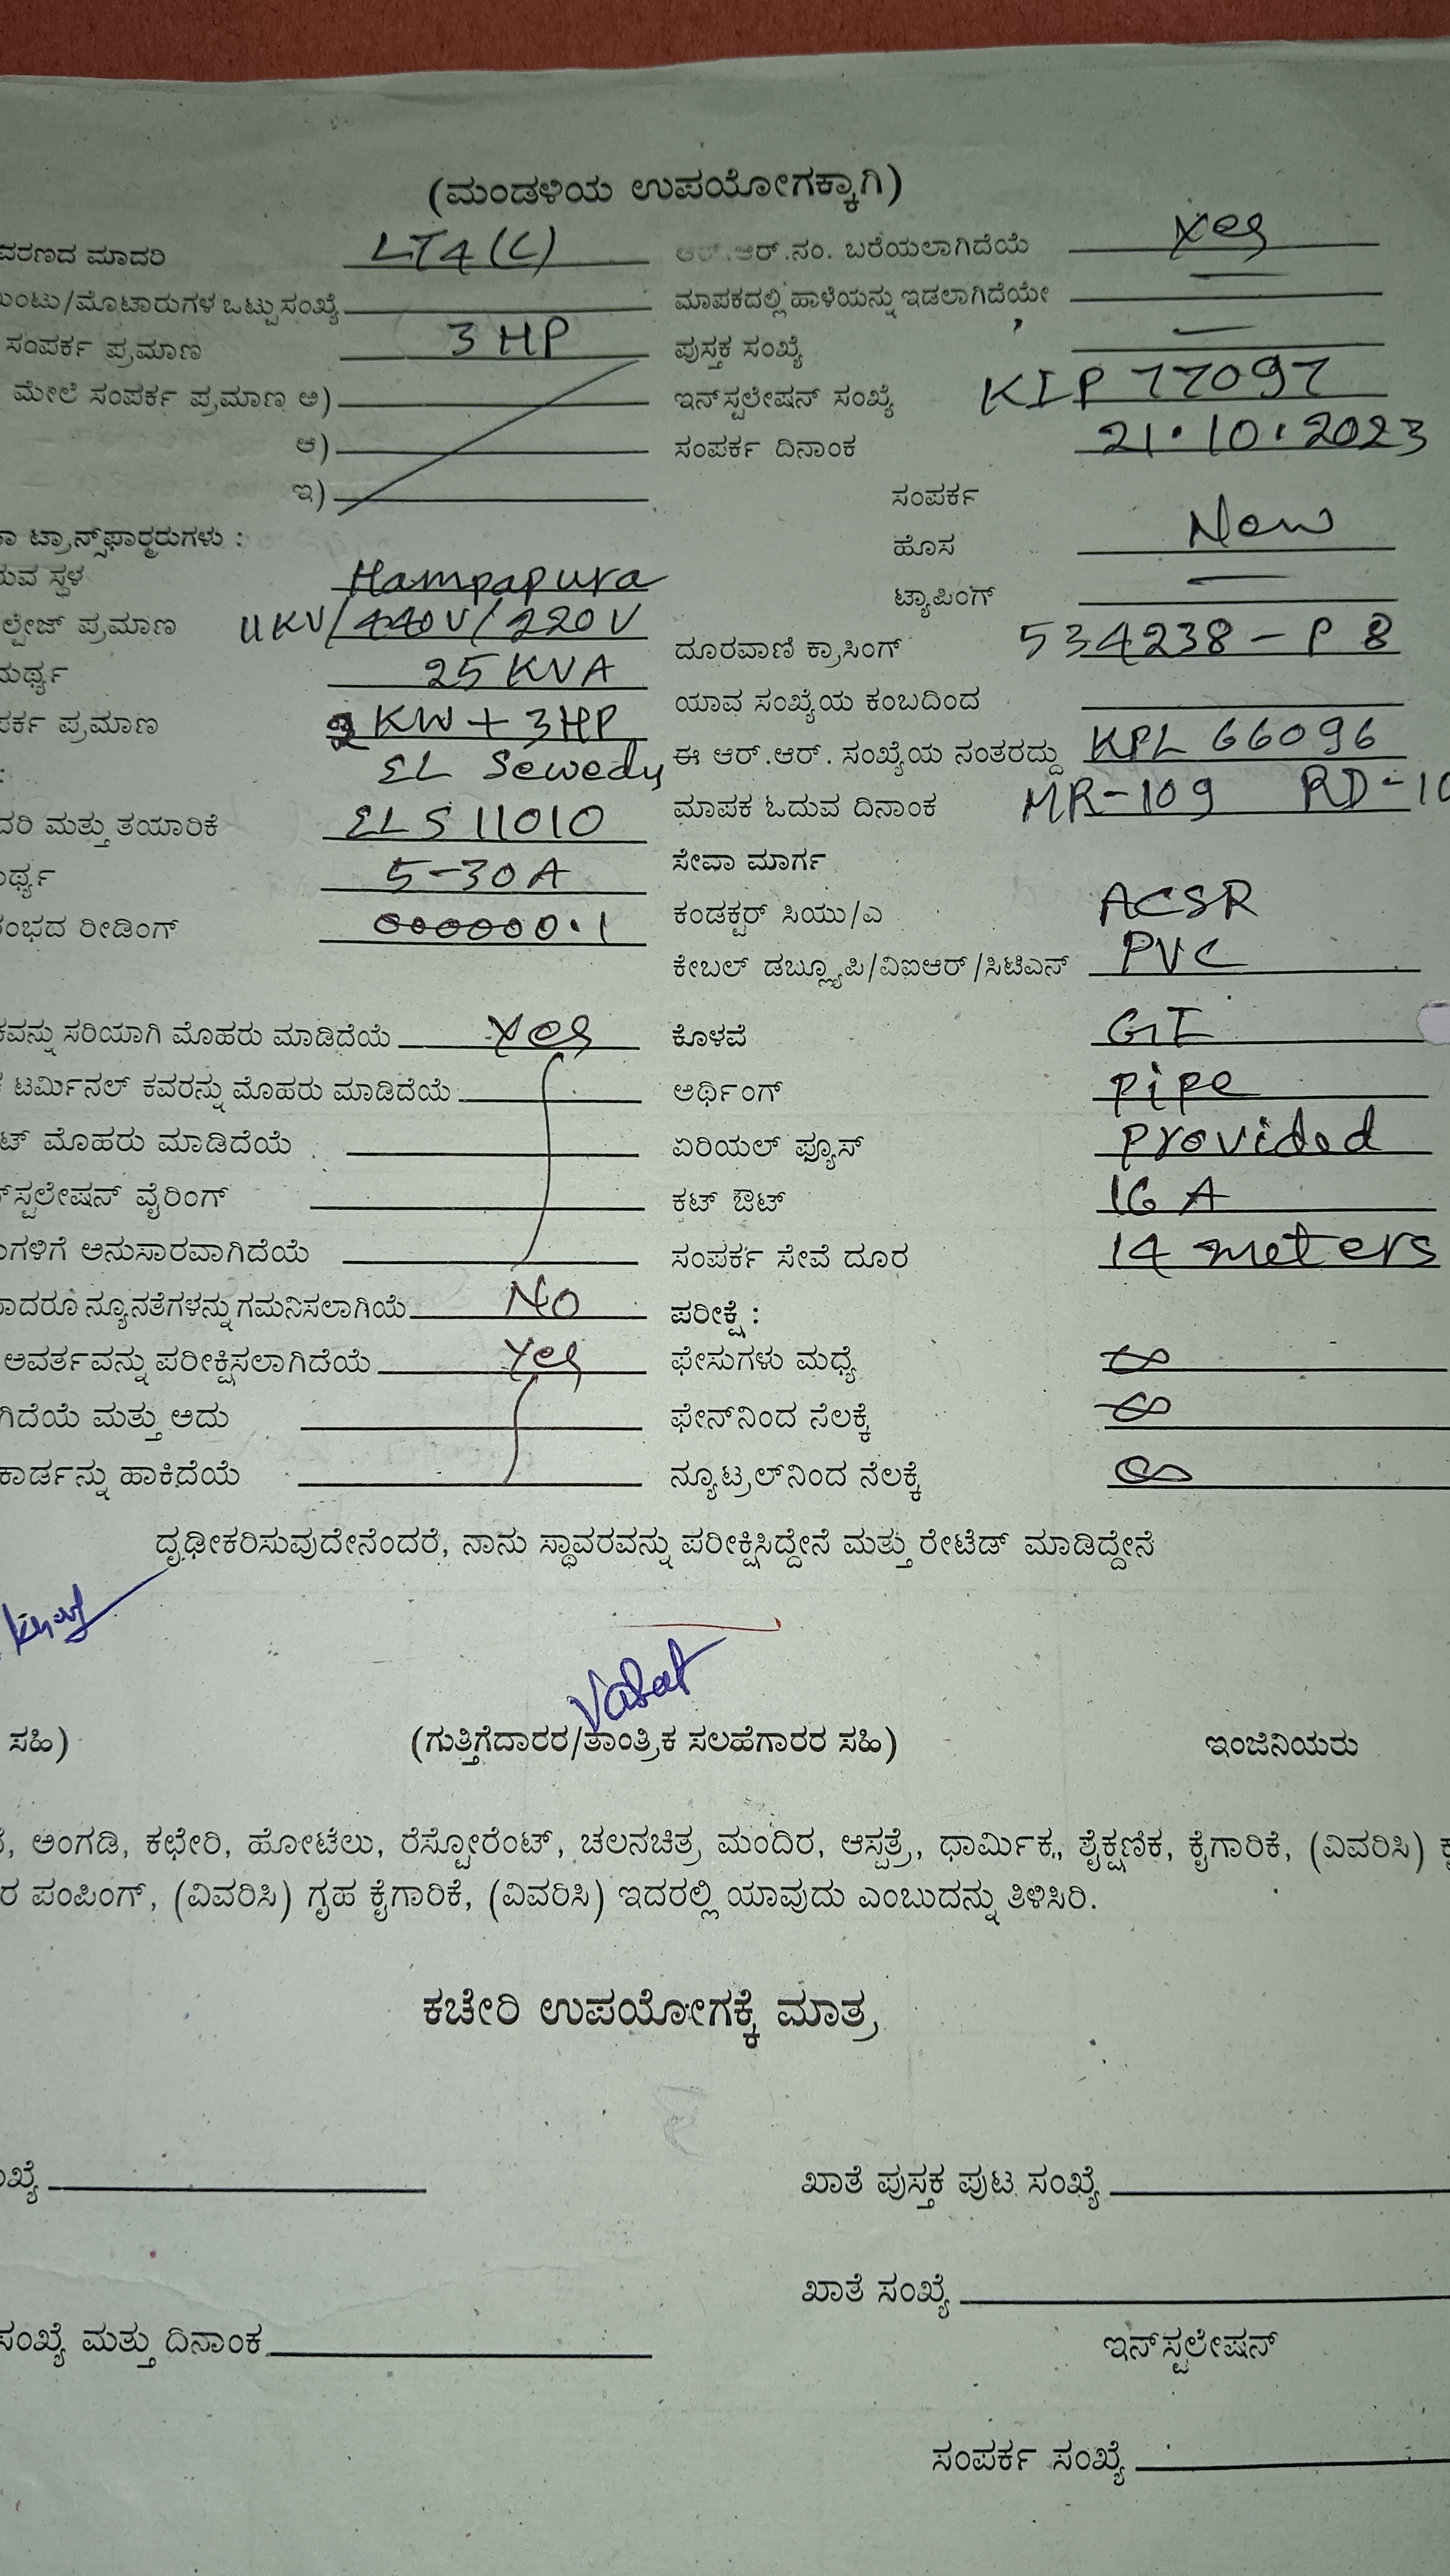 (ಮಂಡಳಿಯ ಉಪಯೋಗಕ್ಕಾಗಿ)
ವರಣದ ಮಾದರಿ LT4(C) ಆರ್.ಆರ್.ನಂ. ಬರೆಯಲಾಗಿದೆಯೆ Yes
ಂಟು/ಮೊಟಾರುಗಳ ಒಟ್ಟು ಸಂಖ್ಯೆ ಮಾಪಕದಲ್ಲಿ ಹಾಳೆಯನ್ನು ಇಡಲಾಗಿದೆಯೇ —
ಸಂಪರ್ಕ ಪ್ರಮಾಣ 3 HP ಪುಸ್ತಕ ಸಂಖ್ಯೆ —
ಮೇಲೆ ಸಂಪರ್ಕ ಪ್ರಮಾಣ ಅ) ಇನ್‌ಸ್ಟಲೇಷನ್ ಸಂಖ್ಯೆ KIP 77097
ಆ) ಸಂಪರ್ಕ ದಿನಾಂಕ 21.10.2023
ಇ) ಸಂಪರ್ಕ
ಟ್ರಾನ್ಸ್‌ಫಾರ್‍ಮರುಗಳು : ಹೊಸ New
ುವ ಸ್ಥಳ Hampapura ಟ್ಯಾಪಿಂಗ್ —
ಲ್ಟೇಜ್ ಪ್ರಮಾಣ 11KV/440V/220V ದೂರವಾಣಿ ಕ್ರಾಸಿಂಗ್ 534238 – P 8
ಮರ್ಥ್ಯ 25 KVA ಯಾವ ಸಂಖ್ಯೆಯ ಕಂಬದಿಂದ
ಪರ್ಕ ಪ್ರಮಾಣ 2 KW + 3HP ಈ ಆರ್.ಆರ್. ಸಂಖ್ಯೆಯ ನಂತರದ್ದು KPL 66096
: EL Sewedy
ದರಿ ಮತ್ತು ತಯಾರಿಕೆ ELS 11010 ಮಾಪಕ ಓದುವ ದಿನಾಂಕ MR-109 RD-10
ರ್ಥ್ಯ 5-30A ಸೇವಾ ಮಾರ್ಗ
ಂಭದ ರೀಡಿಂಗ್ 000000.1 ಕಂಡಕ್ಟರ್ ಸಿಯು/ಎ ACSR
ಕೇಬಲ್ ಡಬ್ಲ್ಯೂಪಿ/ವಿಐಆರ್/ಸಿಟಿಎಸ್ PVC
ಕವನ್ನು ಸರಿಯಾಗಿ ಮೊಹರು ಮಾಡಿದೆಯೆ Yes ಕೊಳವೆ GI
ಟರ್ಮಿನಲ್ ಕವರನ್ನು ಮೊಹರು ಮಾಡಿದೆಯೆ ಅರ್ಥಿಂಗ್ pipe
ಟ್ ಮೊಹರು ಮಾಡಿದೆಯೆ ಏರಿಯಲ್ ಫ್ಯೂಸ್ provided
ನ್‌ಸ್ಟಲೇಷನ್ ವೈರಿಂಗ್ ಕಟ್ ಔಟ್ 16 A
ುಗಳಿಗೆ ಅನುಸಾರವಾಗಿದೆಯೆ ಸಂಪರ್ಕ ಸೇವೆ ದೂರ 14 meters
ಾದರೂ ನ್ಯೂನತೆಗಳನ್ನು ಗಮನಿಸಲಾಗಿಯೆ No ಪರೀಕ್ಷೆ :
ಅವರ್ತವನ್ನು ಪರೀಕ್ಷಿಸಲಾಗಿದೆಯೆ Yes ಫೇಸುಗಳು ಮಧ್ಯೆ ∞
ಗಿದೆಯೆ ಮತ್ತು ಅದು ಫೇಸ್‌ನಿಂದ ನೆಲಕ್ಕೆ ∞
ಕಾರ್ಡನ್ನು ಹಾಕಿದೆಯೆ ನ್ಯೂಟ್ರಲ್‌ನಿಂದ ನೆಲಕ್ಕೆ ∞
ದೃಢೀಕರಿಸುವುದೇನೆಂದರೆ, ನಾನು ಸ್ಥಾವರವನ್ನು ಪರೀಕ್ಷಿಸಿದ್ದೇನೆ ಮತ್ತು ರೇಟೆಡ್ ಮಾಡಿದ್ದೇನೆ
ಸಹಿ) (ಗುತ್ತಿಗೆದಾರರ/ತಾಂತ್ರಿಕ ಸಲಹೆಗಾರರ ಸಹಿ) ಇಂಜಿನಿಯರು
, ಅಂಗಡಿ, ಕಛೇರಿ, ಹೋಟೆಲು, ರೆಸ್ಟೋರೆಂಟ್, ಚಲನಚಿತ್ರ ಮಂದಿರ, ಆಸ್ಪತ್ರೆ, ಧಾರ್ಮಿಕ, ಶೈಕ್ಷಣಿಕ, ಕೈಗಾರಿಕೆ, (ವಿವರಿಸಿ)
ರ ಪಂಪಿಂಗ್, (ವಿವರಿಸಿ) ಗೃಹ ಕೈಗಾರಿಕೆ, (ವಿವರಿಸಿ) ಇದರಲ್ಲಿ ಯಾವುದು ಎಂಬುದನ್ನು ತಿಳಿಸಿರಿ.
ಕಚೇರಿ ಉಪಯೋಗಕ್ಕೆ ಮಾತ್ರ
ಖ್ಯೆ ಖಾತೆ ಪುಸ್ತಕ ಪುಟ ಸಂಖ್ಯೆ
ಖಾತೆ ಸಂಖ್ಯೆ
ಸಂಖ್ಯೆ ಮತ್ತು ದಿನಾಂಕ ಇನ್‌ಸ್ಟಲೇಷನ್
ಸಂಪರ್ಕ ಸಂಖ್ಯೆ